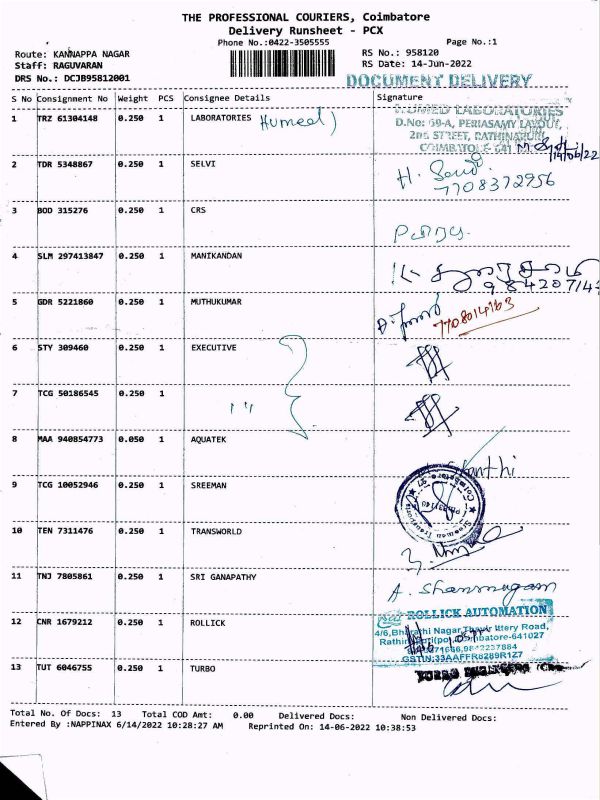 THE PROFESSIONAL COURIERS, Coimbatore
Delivery Runsheet - PCX
Phone No.:0422-3505555 Page No.:1
Route: KANNAPPA NAGAR RS No.: 958120
Staff: RAGUVARAN RS Date: 14-Jun-2022
DRS No.: DCJB95812001
DOCUMENT DELIVERY
S No Consignment No Weight PCS Consignee Details Signature
1 TRZ 61304148 0.250 1 LABORATORIES Humeel)
HUMED LABORATORIES
D.No: 59-A, PERIASAMY LAYOUT,
2nd STREET, RATHINAPURI,
COIMBATORE- 641
14/06/22
2 TDR 5348867 0.250 1 SELVI H. Selvi
7708372956
3 BOD 315276 0.250 1 CRS
4 SLM 297413847 0.250 1 MANIKANDAN
98420714
5 GDR 5221860 0.250 1 MUTHUKUMAR
7708014163
6 STY 309460 0.250 1 EXECUTIVE
7 TCG 50186545 0.250 1
8 MAA 940854773 0.050 1 AQUATEK
9 TCG 10052946 0.250 1 SREEMAN
10 TEN 7311476 0.250 1 TRANSWORLD
11 TNJ 7805861 0.250 1 SRI GANAPATHY A. Shanmugam
12 CNR 1679212 0.250 1 ROLLICK
ROLLICK AUTOMATION
4/6,Bharathi Nagar,Thayir Ittery Road,
Rathinapuri(po), Coimbatore-641027
9842237884
GSTIN:33AAFFR8289R1Z7
13 TUT 6046755 0.250 1 TURBO
Total No. Of Docs: 13 Total COD Amt: 0.00 Delivered Docs: Non Delivered Docs:
Entered By :NAPPINAX 6/14/2022 10:28:27 AM Reprinted On: 14-06-2022 10:38:53